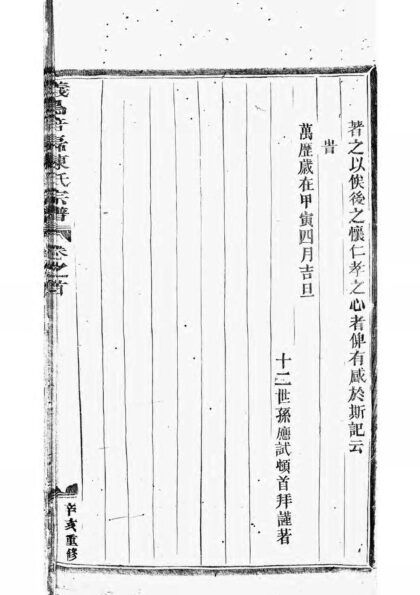 著之以俟後之懷仁孝之心者俾有感於斯記云
旹
萬歷歲在甲寅四月吉旦
十二世孫應試頓首拜謹著
陳氏宗譜
卷之首
辛亥重修